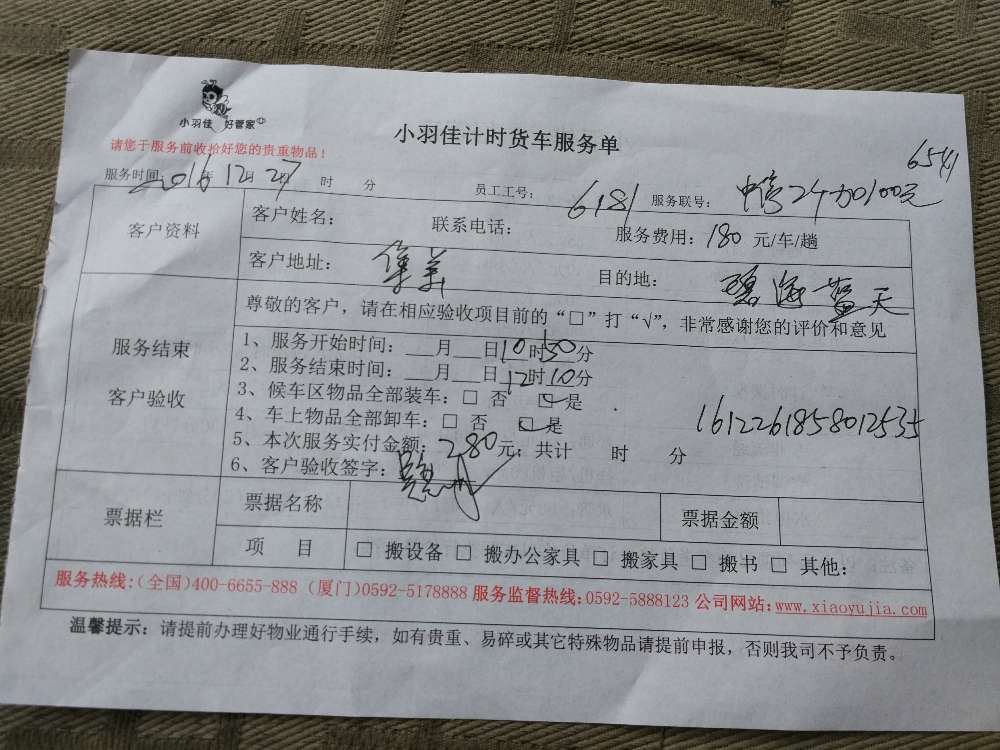 小羽佳 好管家
小羽佳计时货车服务单
请您于服务前收拾好您的贵重物品！
服务时间：2016年12月27 时 分 员工工号：6181 服务联号：
客户资料
客户姓名： 联系电话： 服务费用：180 元/车/趟
客户地址：集美 目的地：碧海蓝天
服务结束
客户验收
尊敬的客户，请在相应验收项目前的“□”打“√”，非常感谢您的评价和意见
1、服务开始时间：___月___日10时50分
2、服务结束时间：___月___日12时10分
3、候车区物品全部装车：□ 否 ☑是
4、车上物品全部卸车：□ 否 ☑是
1612261858012535
5、本次服务实付金额：280元；共计 时 分
6、客户验收签字：
票据栏
票据名称 票据金额
项 目 □ 搬设备 □ 搬办公家具 □ 搬家具 □ 搬书 □ 其他：
服务热线：（全国）400-6655-888 （厦门）0592-5178888 服务监督热线：0592-5888123 公司网站：www.xiaoyujia.com
温馨提示：请提前办理好物业通行手续，如有贵重、易碎或其它特殊物品请提前申报，否则我司不予负责。